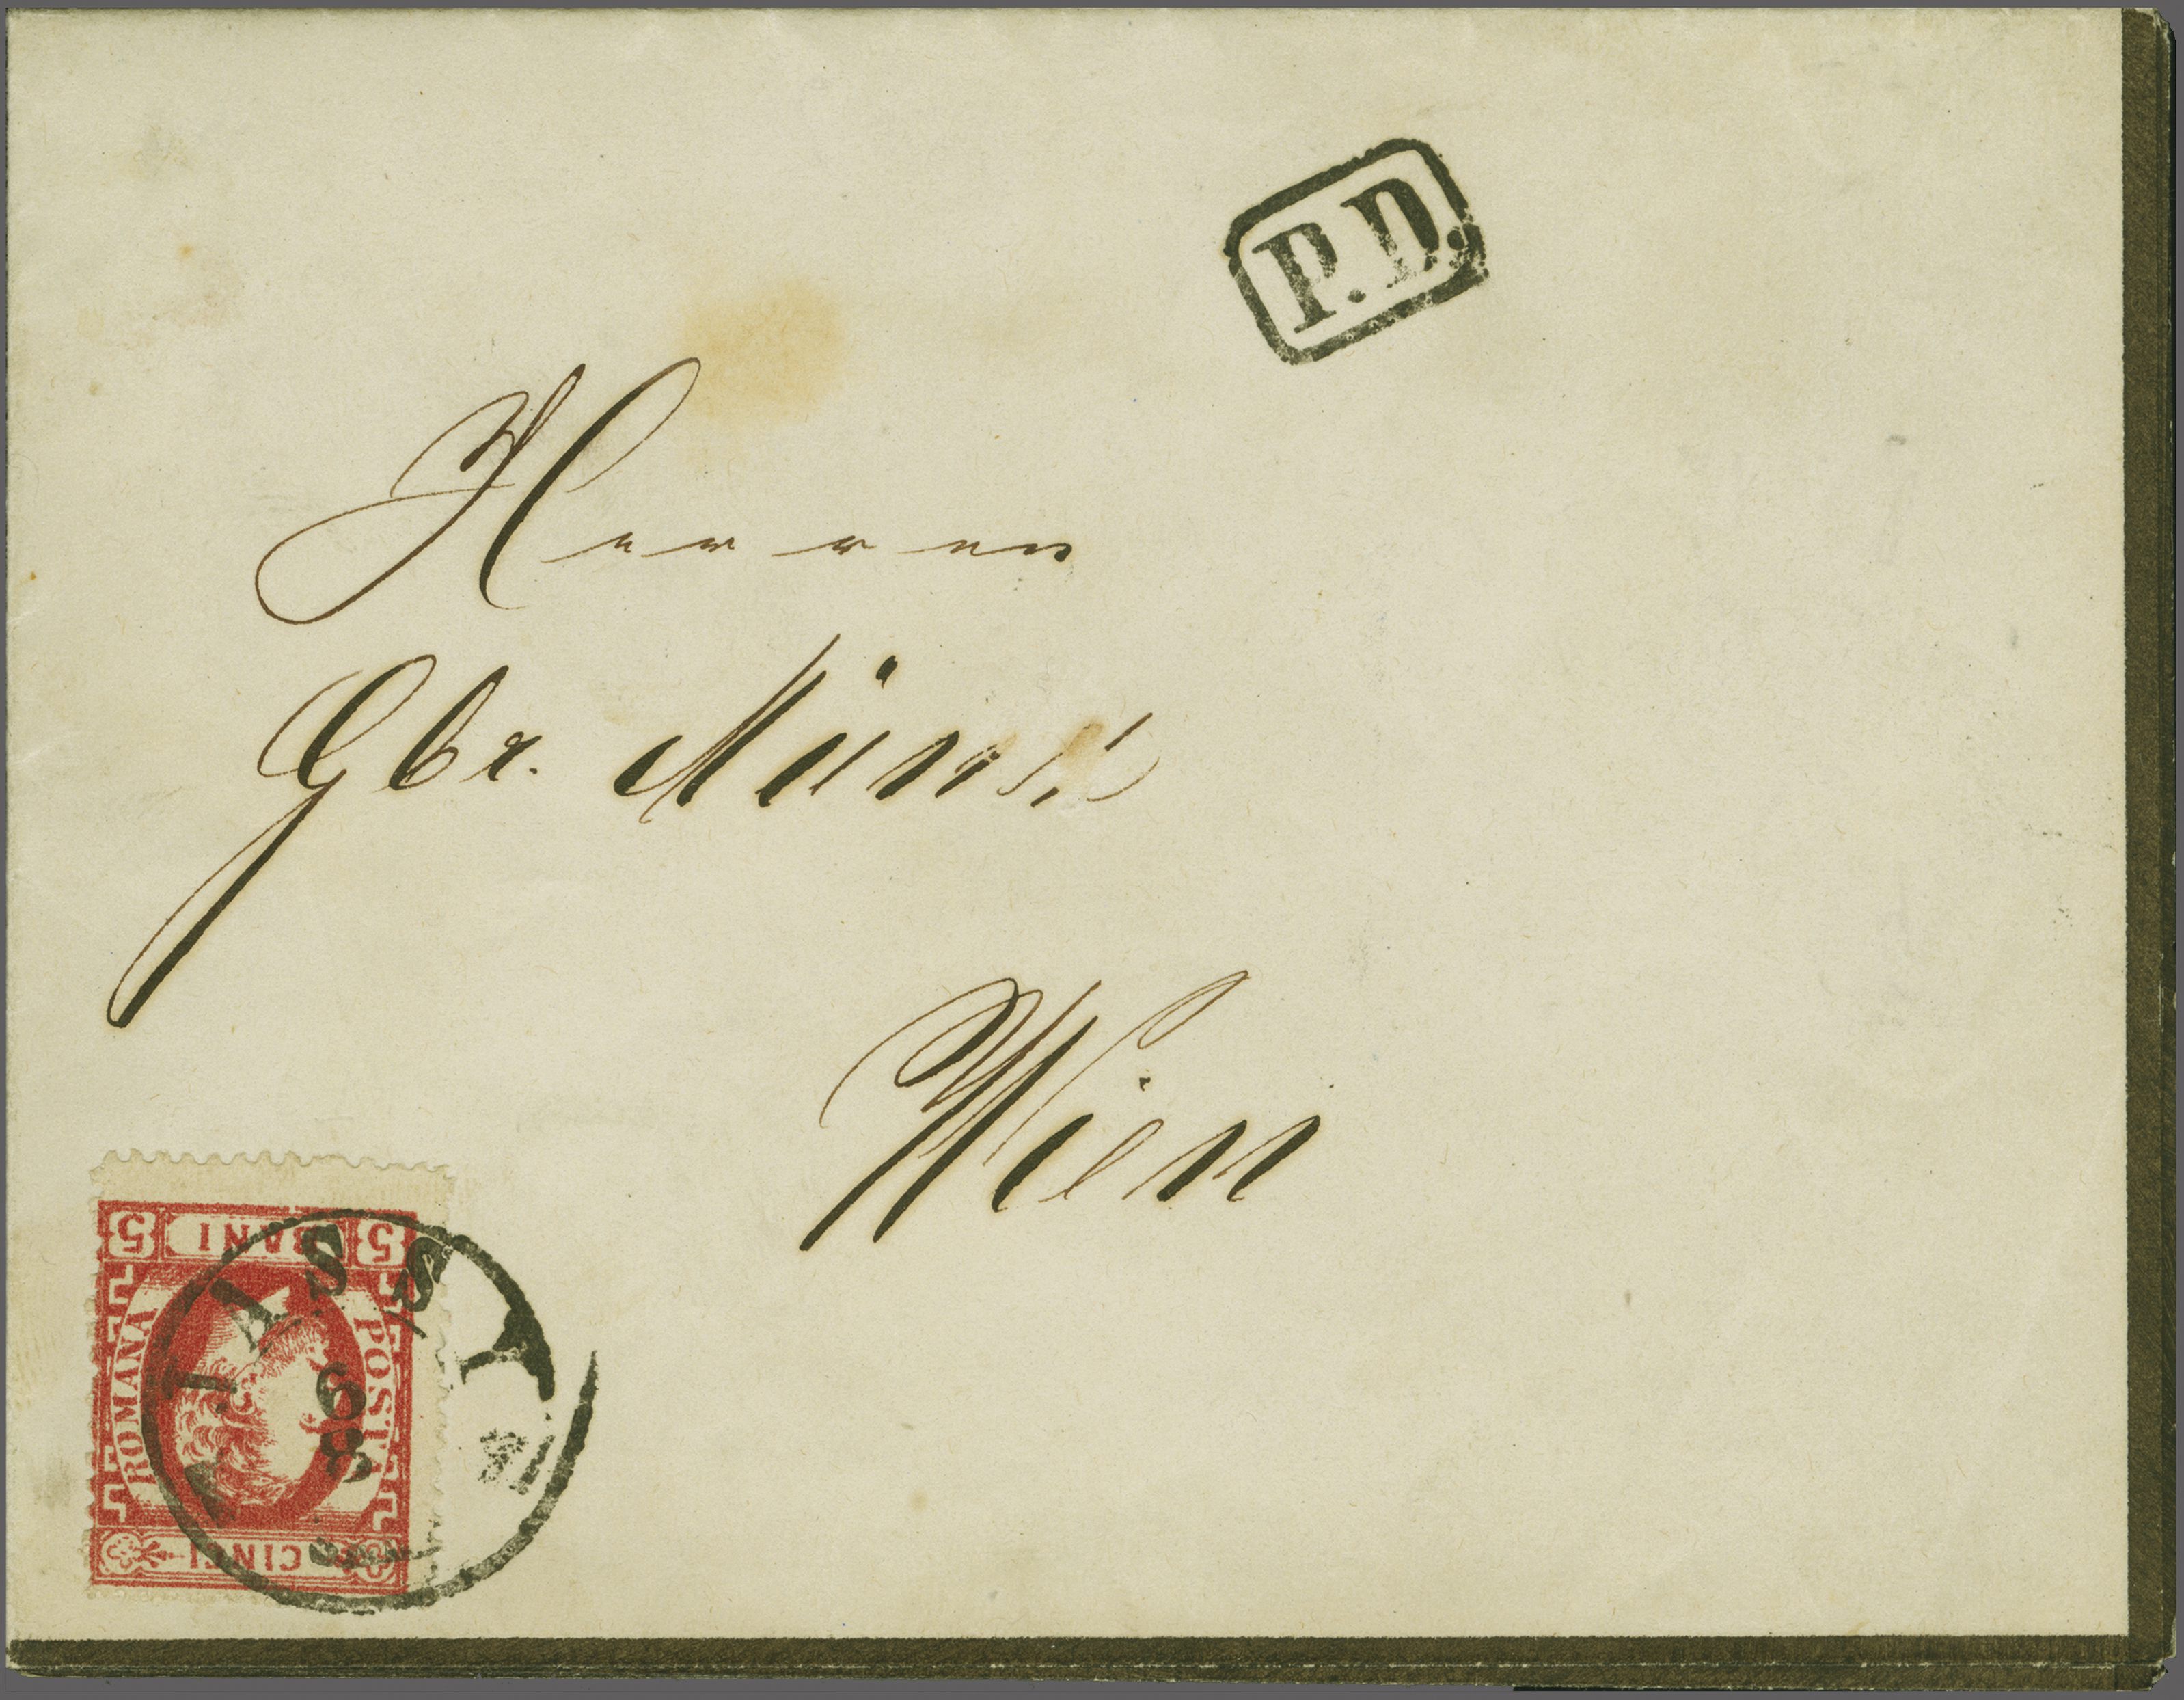 P.D.
Herren
Gbr.
Wien
5 BANI 5
POSTA
ROMANA
CINCI
IASSY
6
8